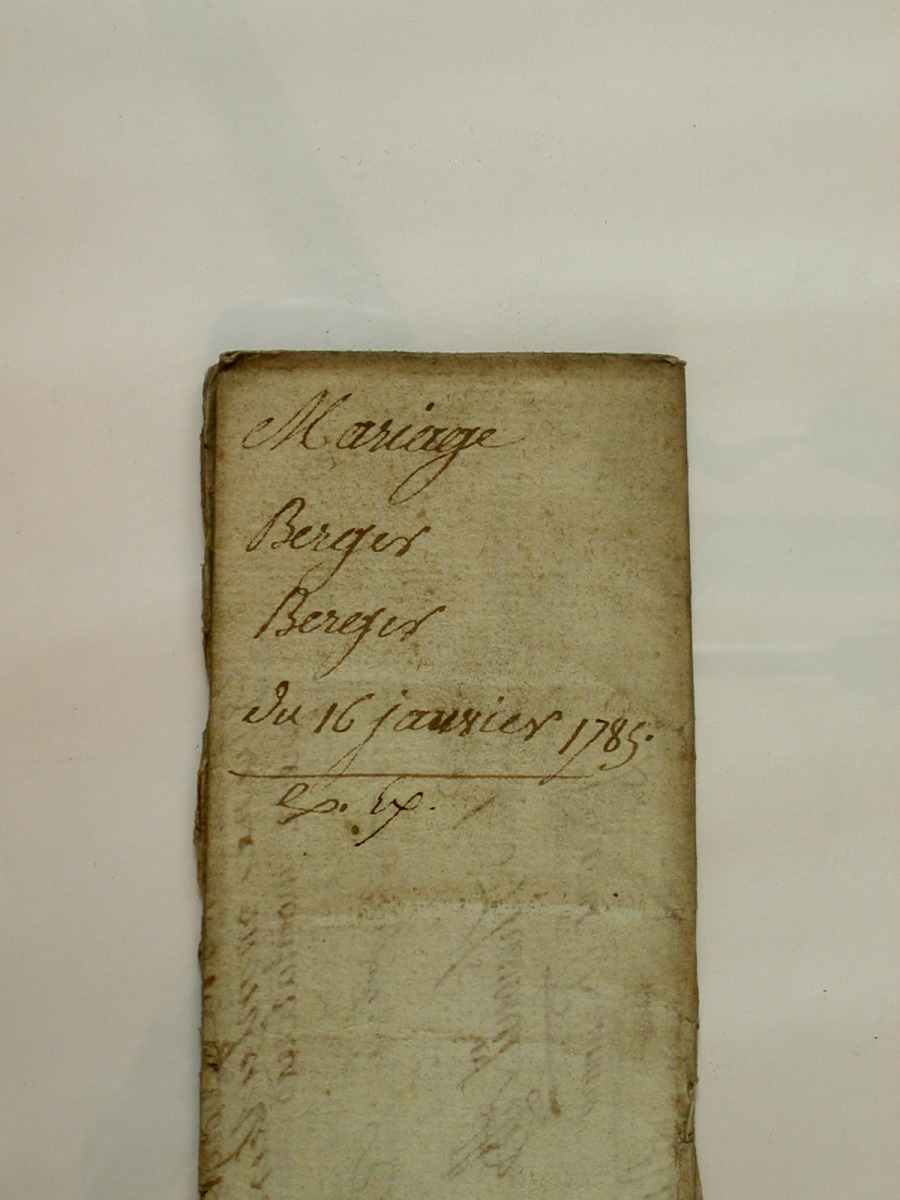 Mariage
Berger
Bereger
du 16 janvier 1785.
ex. Ex.